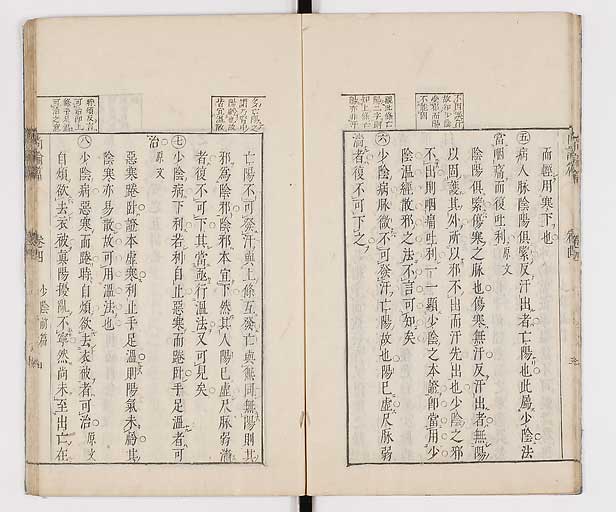 而輕用寒下也
㊄病人脉陰陽俱緊反汗出者亡陽也此屬少陰法
當咽痛而復吐利 原文
陰陽俱緊傷寒之脉也傷寒無汗反汗出者無陽
以固護其外所以邪不出而汗先出也少陰之邪
不出則咽痛吐利一一顯少陰之本證卽當用少
陰溫經散邪之法不言可知矣
㊅少陰病脉微不可發汗亡陽故也陽已虛尺脉弱
濇者復不可下之
亡陽不可發汗與上條互發亡與無同無陽則其
邪爲陰邪陰邪本宜下然其人陽已虛尺脉弱濇
者復不可下其當亟行溫法又可見矣
㊆少陰病下利若利自止惡寒而踡臥手足溫者可
治 原文
惡寒踡臥證本虛寒利止手足溫則陽氣未虧其
陰寒亦易散故可用溫法也
㊇少陰病惡寒而踡時自煩欲去衣被者可治 原文
自煩欲去衣被眞陽擾亂不寧然尚未至出亡在
尚論篇
卷四
少陰前篇